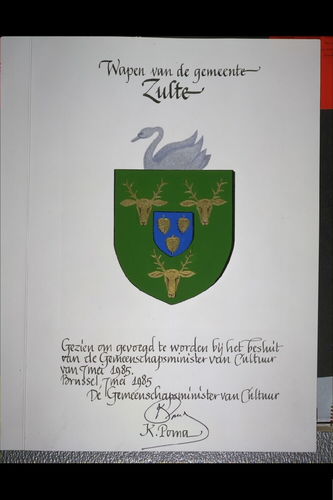 Wapen van de gemeente
Zulte
Gezien om gevoegd te worden bij het besluit
van de Gemeenschapsminister van Cultuur
van 7 mei 1985.
Brussel, 7 mei 1985
De Gemeenschapsminister van Cultuur
K. Poma